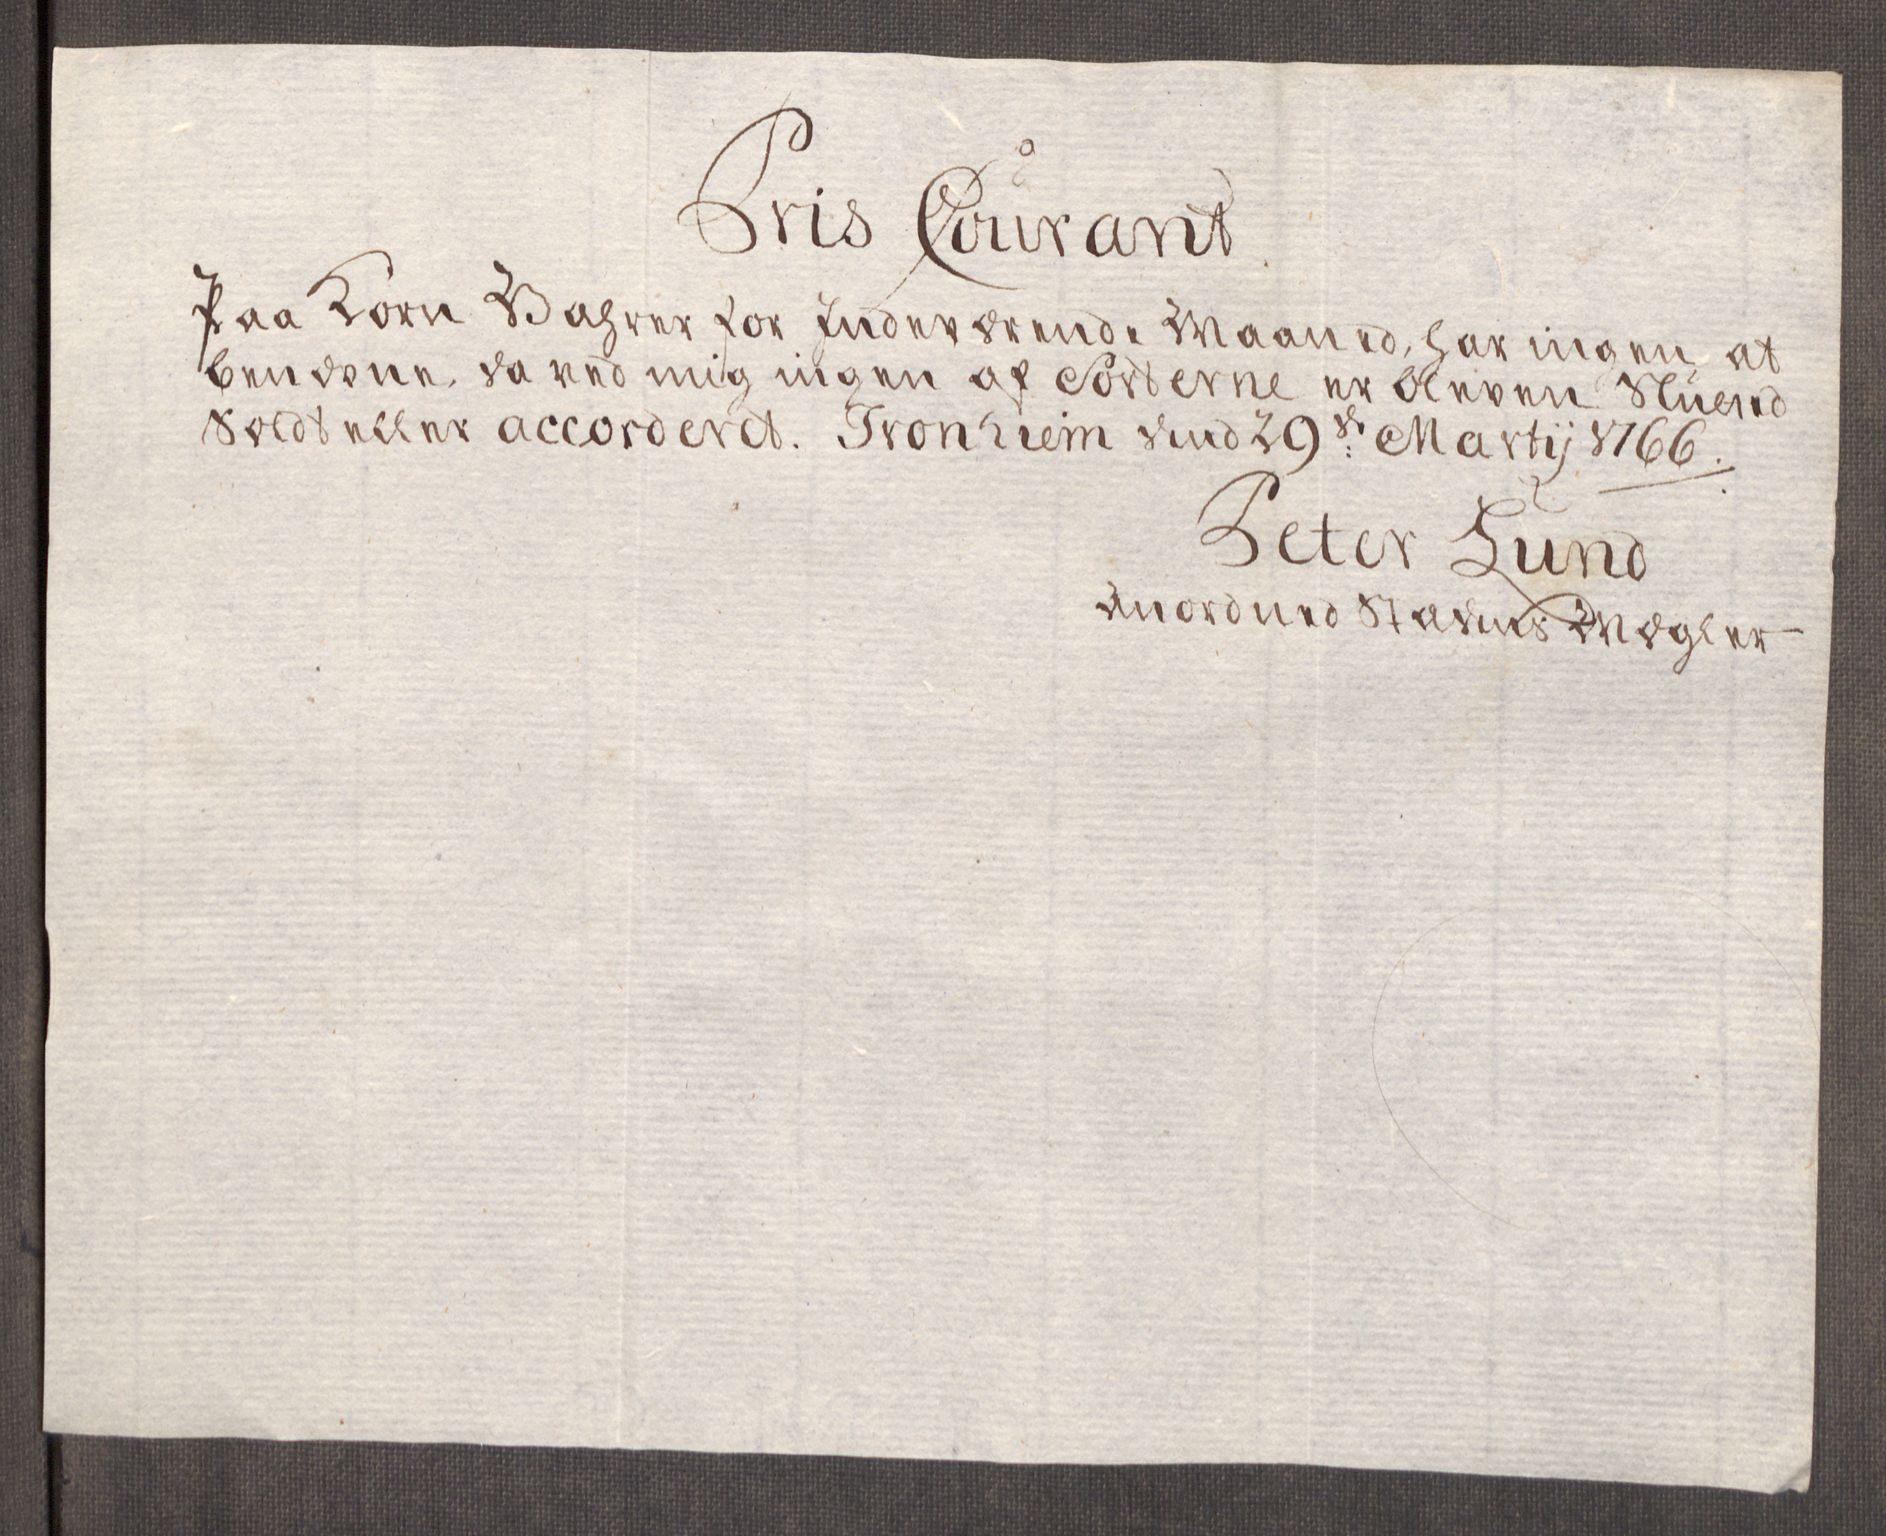 Pris Courant
Paa Korn Vahrer for Indeværende Maaned, har ingen at
benævne, da ved mig ingen af Sorterne er bleven Sluted
Soldt eller accorderet. Tronhiem dend 29de Martij 1766.
Peter Lund
Anordned Stadens Mægler